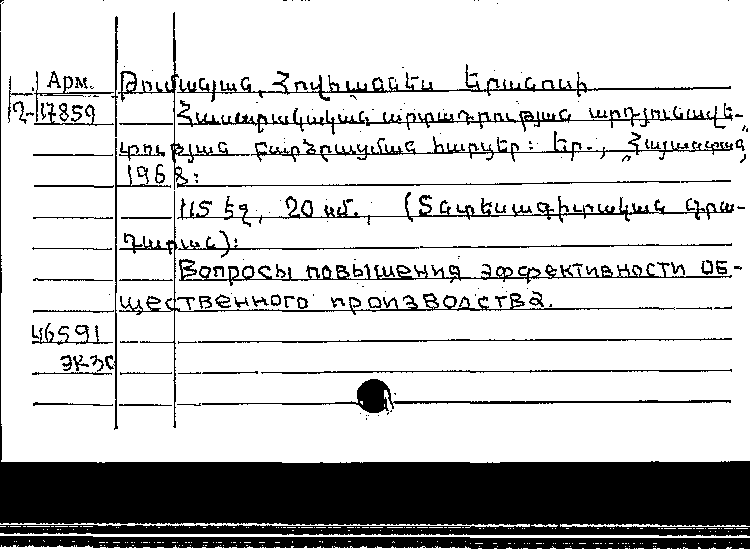 Арм. Թումանյան, Հովհաննես Երանոսի
2-17859 Հասարակական արտադրության արդյունավե-
տության բարձրացման հարցեր: Եր., „Հայաստան„
1968:
115 էջ, 20 սմ., (Տնտեսագիտական գրա-
դարան):
Вопросы повышения эффективности об-
щественного производства.
46591